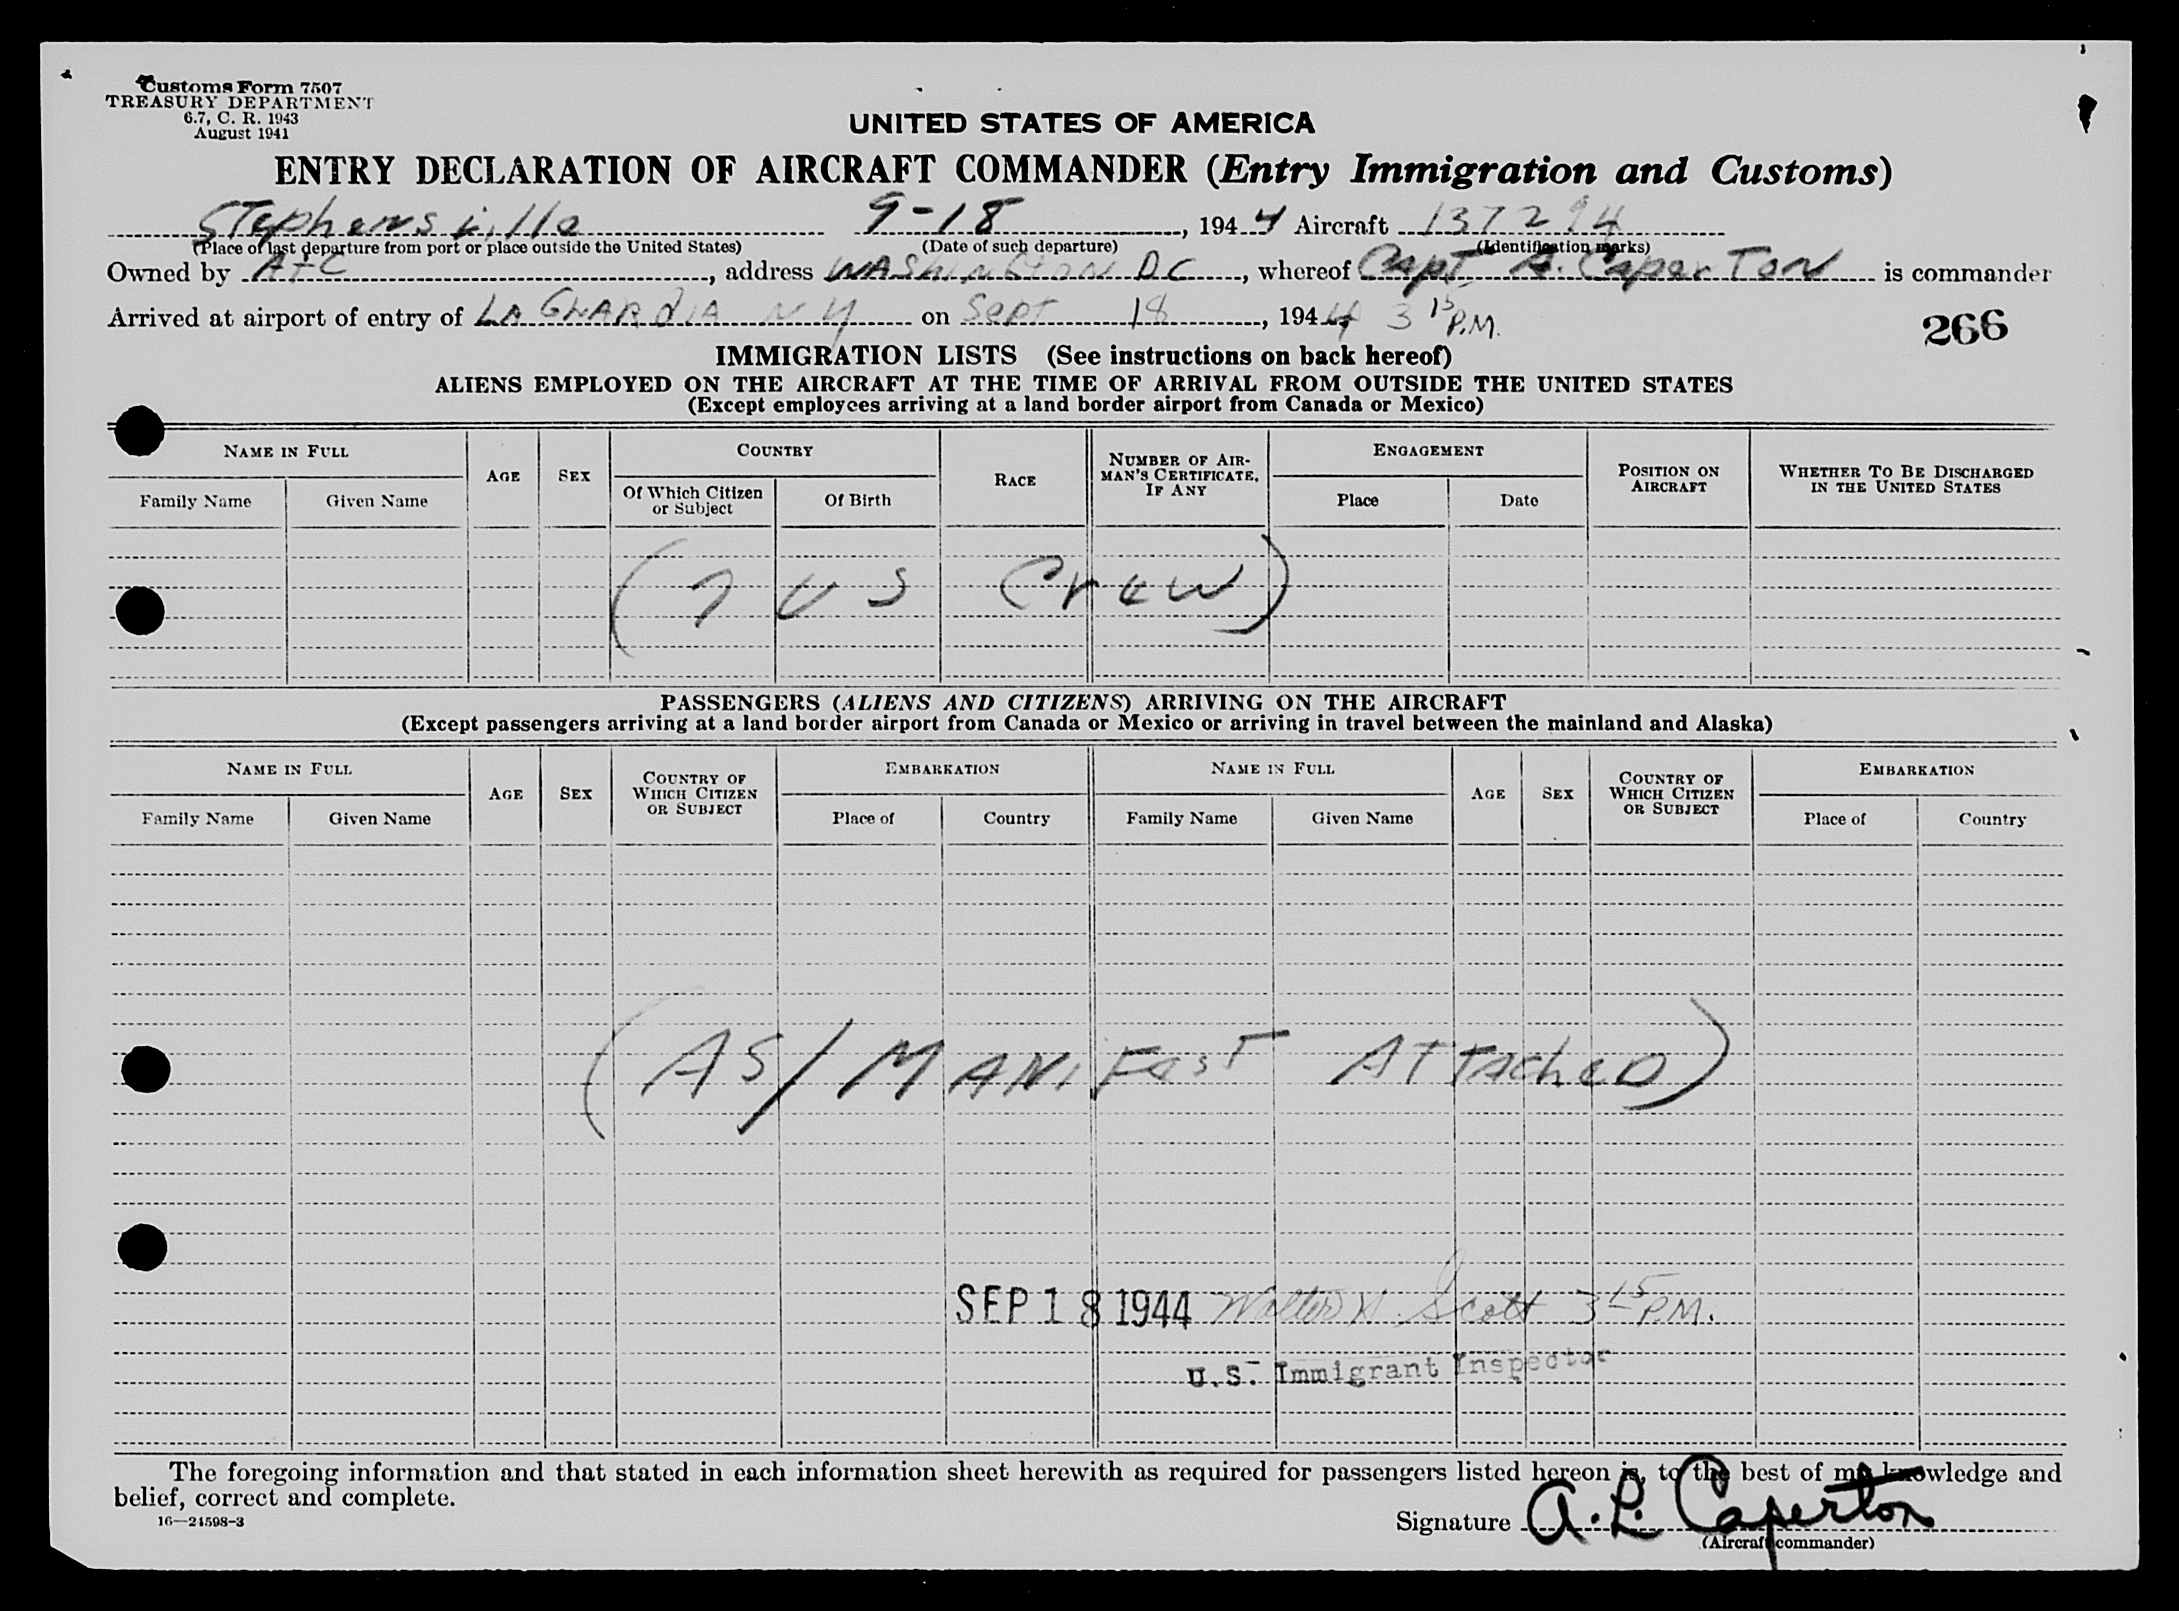 Customs Form 7507
TREASURY DEPARTMENT
6.7, C. R. 1943
August 1941
UNITED STATES OF AMERICA
ENTRY DECLARATION OF AIRCRAFT COMMANDER (Entry Immigration and Customs)
Stephensville 9-18, 1944 Aircraft 137294
(Place of last departure from port or place outside the United States) (Date of such departure) (Identification marks)
Owned by ATC, address WASHINGTON DC, whereof Capt A. Caperton is commander
Arrived at airport of entry of LA GUARDIA NY on Sept 18, 1944 3 15 P.M.
266
IMMIGRATION LISTS (See instructions on back hereof)
ALIENS EMPLOYED ON THE AIRCRAFT AT THE TIME OF ARRIVAL FROM OUTSIDE THE UNITED STATES
(Except employees arriving at a land border airport from Canada or Mexico)
NAME IN FULL AGE SEX COUNTRY RACE NUMBER OF AIRMAN'S CERTIFICATE, IF ANY ENGAGEMENT POSITION ON AIRCRAFT WHETHER TO BE DISCHARGED IN THE UNITED STATES
Family Name Given Name Of Which Citizen or Subject Of Birth Place Date
(7 US Crew)
PASSENGERS (ALIENS AND CITIZENS) ARRIVING ON THE AIRCRAFT
(Except passengers arriving at a land border airport from Canada or Mexico or arriving in travel between the mainland and Alaska)
NAME IN FULL AGE SEX COUNTRY OF WHICH CITIZEN OR SUBJECT EMBARKATION NAME IN FULL AGE SEX COUNTRY OF WHICH CITIZEN OR SUBJECT EMBARKATION
Family Name Given Name Place of Country Family Name Given Name Place of Country
(AS/MANIFEST ATTACHED)
SEP 18 1944 Walter H. Scott 3 15 P.M.
U.S. Immigrant Inspector
The foregoing information and that stated in each information sheet herewith as required for passengers listed hereon is, to the best of my knowledge and
belief, correct and complete.
16—24598-3
Signature A. L. Caperton
(Aircraft commander)